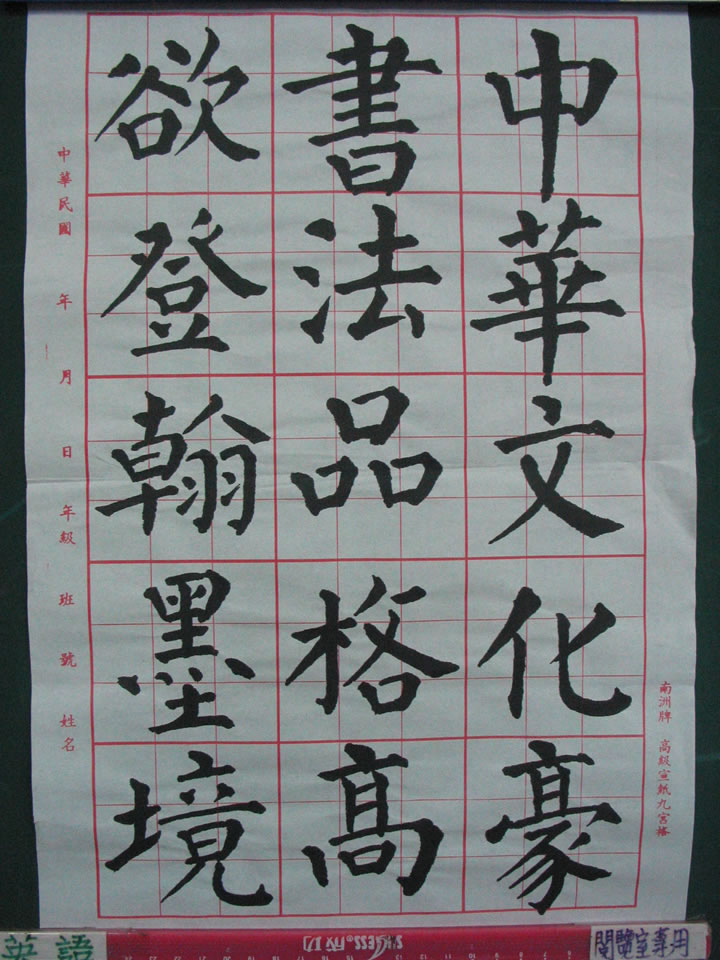 中華文化豪
書法品格高
欲登翰墨境
南洲牌 高級宣紙九宮格
中華民國 年 月 日 年級 班 號 姓名
英語
SUCCESS® 成功
閱覽室專用